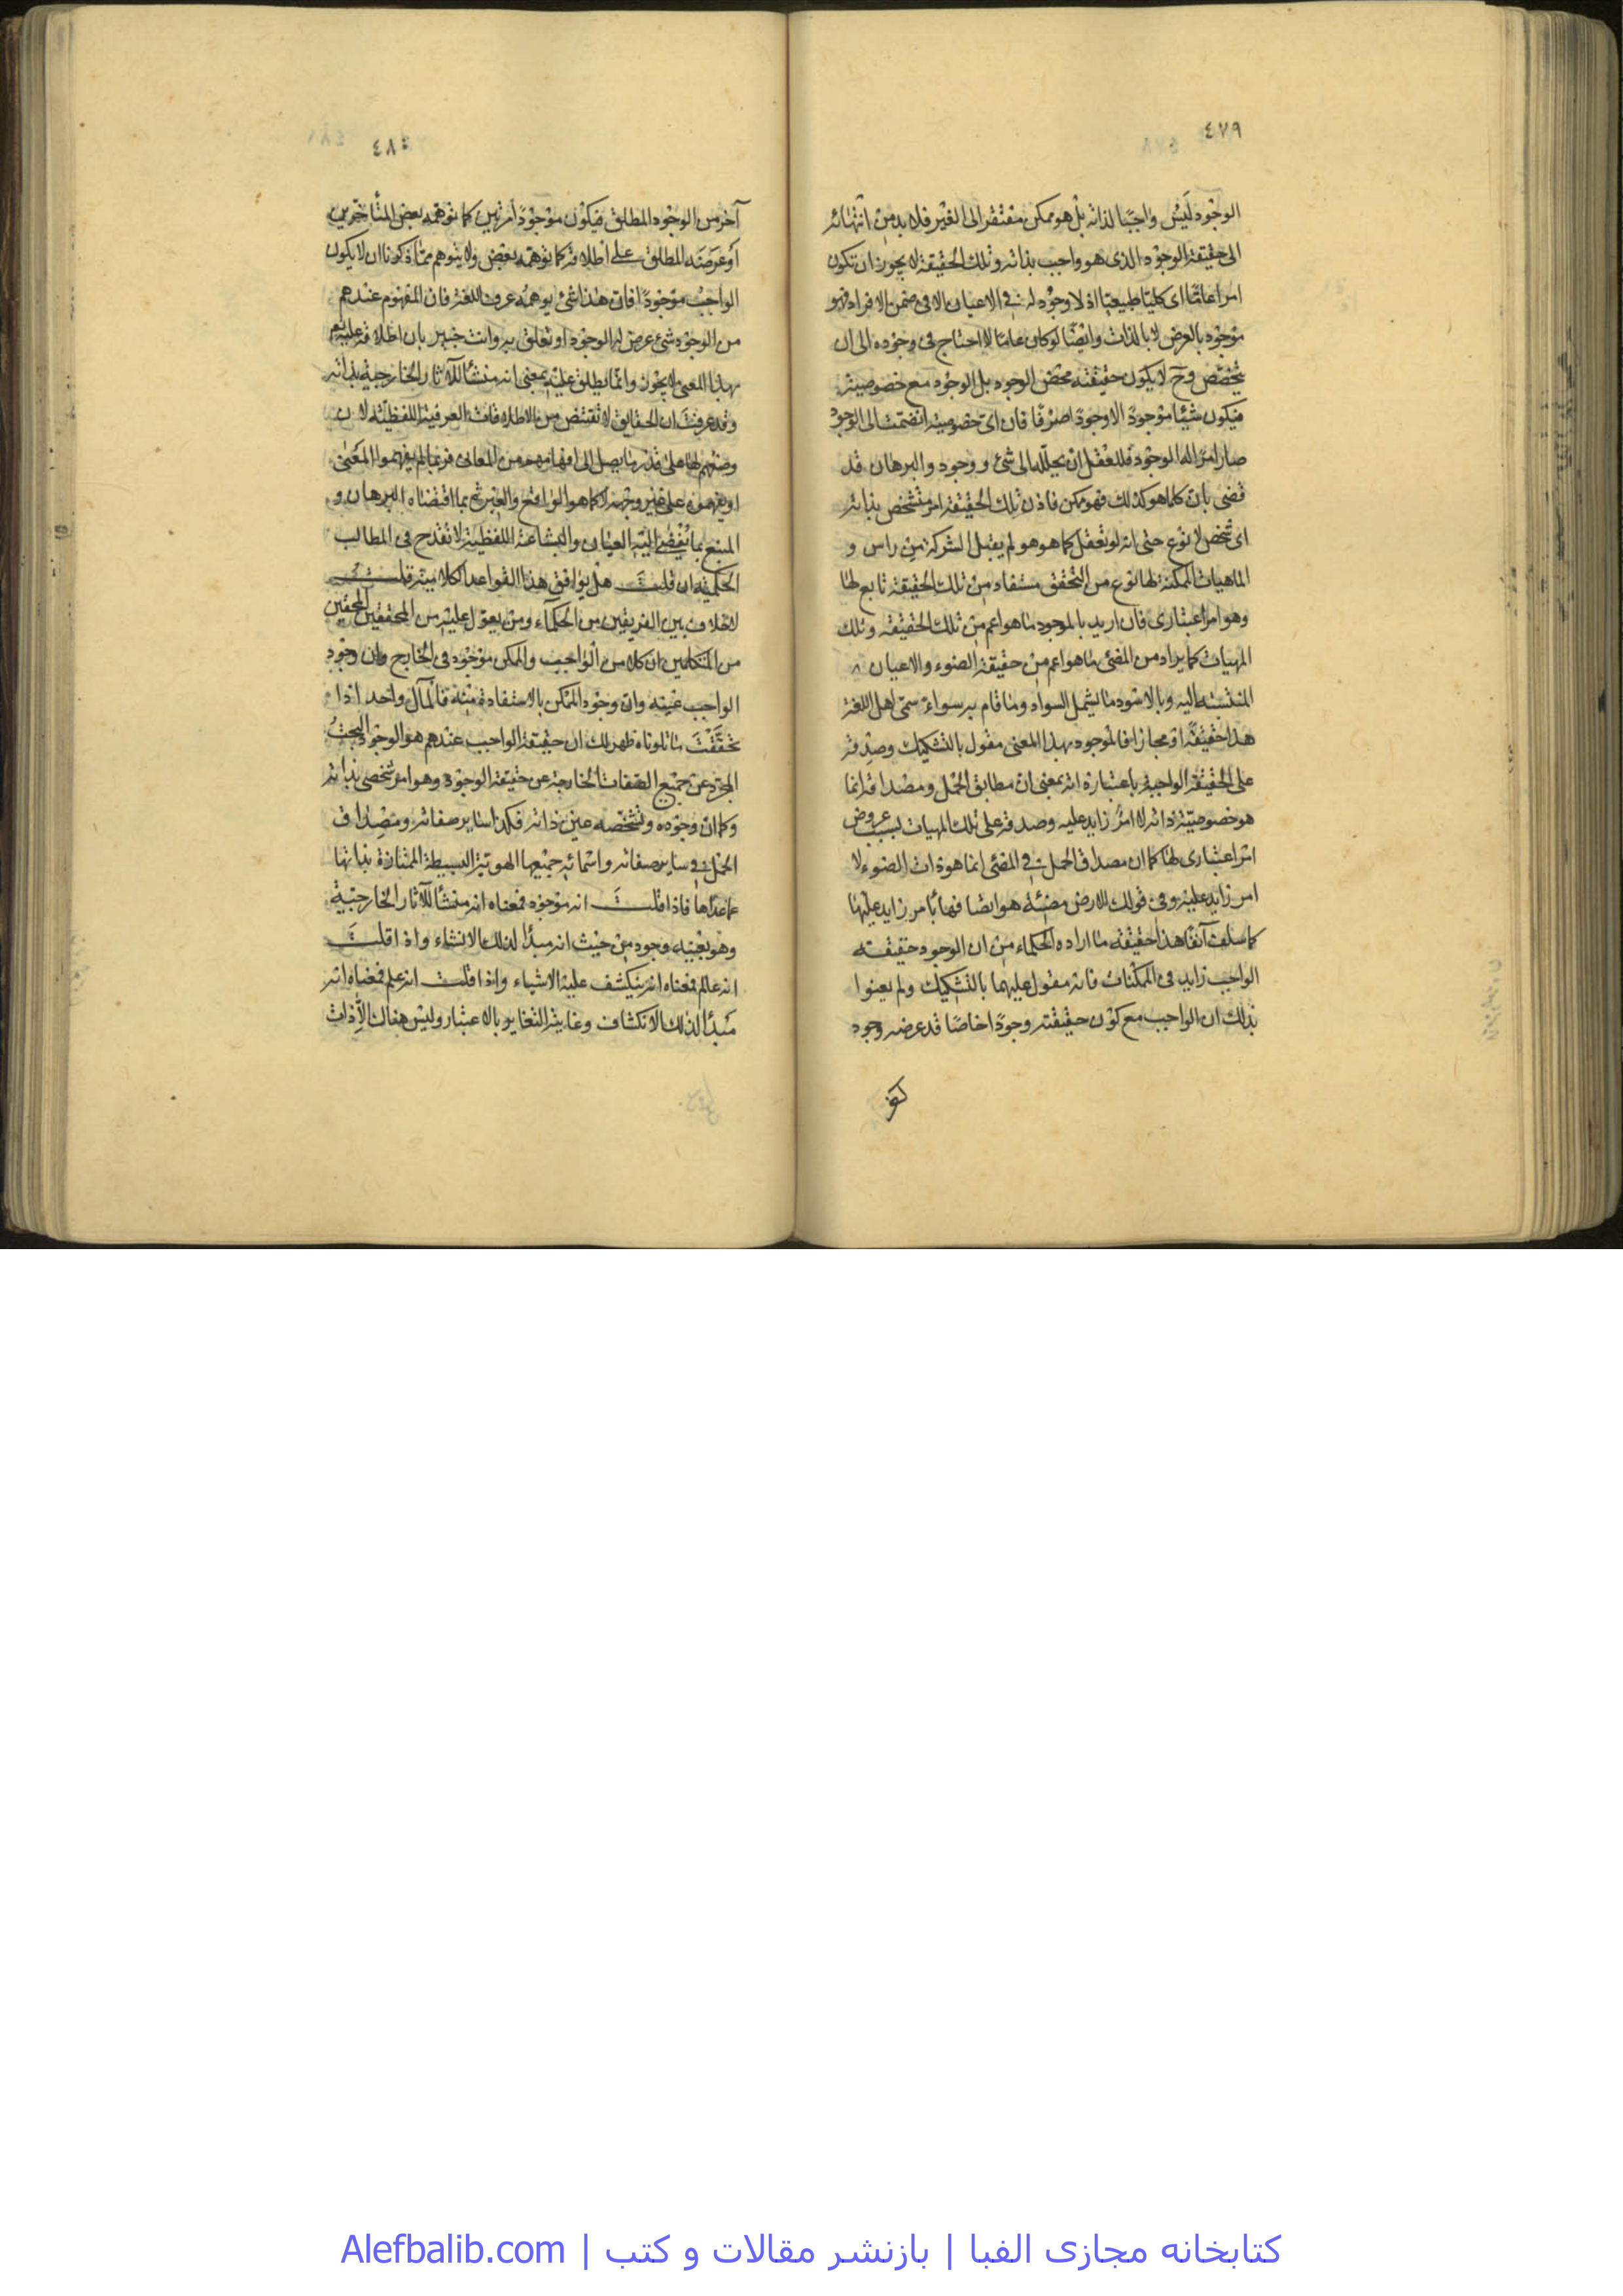 ٤٧٩
الوجود ليس واجبا لذاته بل هو ممكن مفتقر الى الغير فلا بد من انتهائه
الى حقيقة الوجود الذى هو واجب بذاته وتلك الحقيقة لا يجوز ان تكون
امرا عاما اى كليا طبيعيا اذ لا وجود له فى الاعيان الا فى ضمن الافراد فهو
موجود بالعرض لا بالذات وايضا لو كان عاما لاحتاج فى وجوده الى ان
يتخصص وح لا يكون حقيقته محض الوجود بل الوجود مع خصوصية
فيكون شيئا موجودا لا وجودا صرفا فان اى خصوصية انضمت الى الوجود
صار امرا له الوجود فللعقل ان يحلله الى شئ ووجود والبرهان قد
قضى بان كلما هو كذلك فهو ممكن فاذن تلك الحقيقة امر متشخص بذاته
اى شخص لا نوع حتى انه لو تعقل كما هو هو لم يقبل الشركة من راس و
الماهيات الممكنة لها نوع من التحقق مستفاد من تلك الحقيقة تابع لها
وهو امر اعتبارى فان اريد بالموجود ما هو اعم من تلك الحقيقة وتلك
المهيات كما يراد من المضئ ما هو اعم من حقيقة الضوء والاعيان
المنتسبة اليه وبالاسود ما يشمل السواد وما قام به سواء سمى اهل اللغة
هذا حقيقة او مجازا فالموجود بهذا المعنى مقول بالتشكيك وصدقه
على الحقيقة الواجبة باعتبار ذاته بمعنى ان مطابق الحمل ومصداقه انما
هو خصوصية ذاته لا امر زايد عليه وصدقه على تلك المهيات بسبب عروض
امر اعتبارى لها كما ان مصداق الحمل فى المضئ انما هو ذات الضوء لا
امر زايد عليه وفى قولك الارض مضيئة هو ايضا فيها بامر زايد عليها
كما سلف آنفا هذا حقيقة ما اراده الحكماء من ان الوجود حقيقة
الواجب زايد فى الممكنات فانه مقول عليهما بالتشكيك ولم يعنوا
بذلك ان الواجب مع كون حقيقته وجودا خاصا قد عرضه وجود
٤٨٠
آخر من الوجود المطلق فيكون موجودا مرتين كما توهمه بعض المتأخرين
او عرضه المطلق على اطلاقه كما توهمه بعض ولا يتوهم مما ذكرنا ان لا يكون
الواجب موجودا فان هذا شئ يوهمه عرف اللغة فان المفهوم عندهم
من الوجود شئ عرض له الوجود او تعلق به وانت خبير بان اطلاقه عليه
بهذا المعنى لا يجوز وانما يطلق عليه بمعنى انه منشأ للآثار الخارجية بذاته
وقد عرفت ان الحقايق لا تقتنص من الاطلاقات العرفية اللفظية لان
وضعهم لها على قدر ما يصل الى افهامهم من المعانى فربما لم يفهموا المعنى
او يفهمونه على غير وجهه لا كما هو الواقع والعبرة بما اقتضاه البرهان و
المتبع بما يفضى اليه العيان والبشاعة اللفظية لا تقدح فى المطالب
الحكمية ان قلت هل يوافق هذا القواعد الكلامية قلت
لا خلاف بين الفريقين من الحكماء ومن يعول عليه من المحققين
من المتكلمين ان كلا من الواجب والممكن موجود فى الخارج وان وجود
الواجب عينه وان وجود الممكن بالاستفادة منه فالمآل واحد اذا
تحققت ما تلوناه ظهر لك ان حقيقة الواجب عندهم هو الوجود البحت
المجرد عن جميع الصفات الخارجة عن حقيقة الوجود وهو امر شخصى بذاته
وكما ان وجوده وتشخصه عين ذاته فكذا ساير صفاته ومصداق
الحمل فى ساير صفاته واسمائه جميعها الهوية البسيطة الممتازة بذاتها
عما عداها فاذا قلت انه موجود فمعناه انه منشأ للآثار الخارجية
وهو بعينه وجود من حيث انه مبدأ لذلك الانشاء واذا قلت
انه عالم فمعناه انه ينكشف عليه الاشياء واذا قلت انه علم فمعناه انه
مبدأ لذلك الانكشاف وغاية التغاير بالاعتبار وليس هناك الا ذات
کتابخانه مجازی الفبا | بازنشر مقالات و کتب | Alefbalib.com